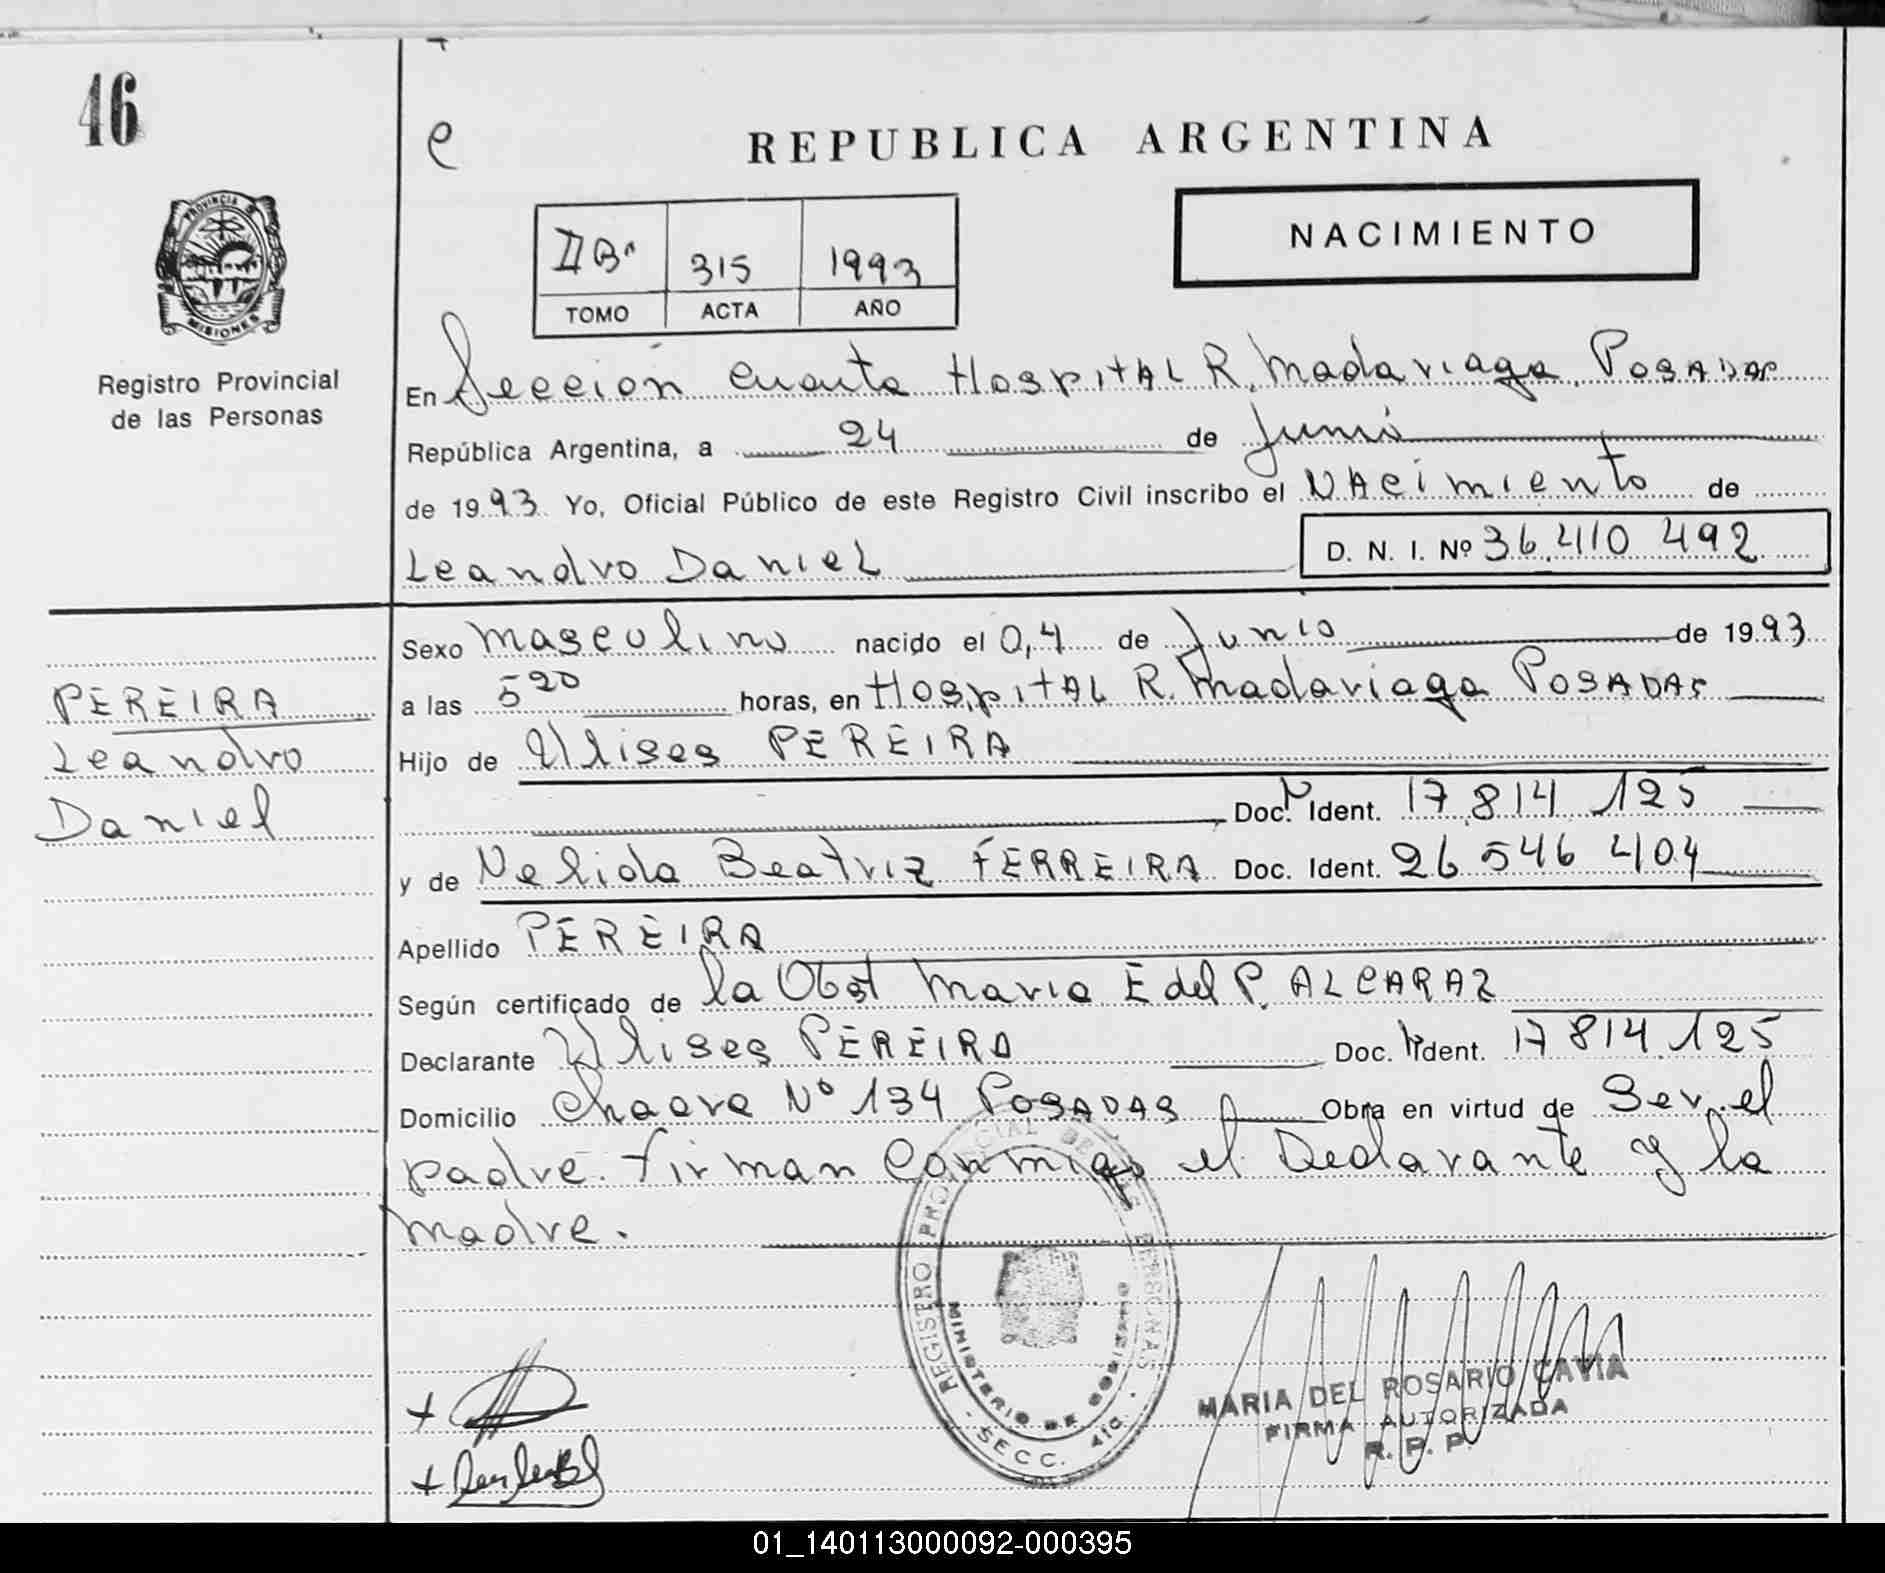 46
e
REPUBLICA ARGENTINA
PROVINCIA DE
MISIONES
Registro Provincial
de las Personas
II Bⁿ 315 1993
TOMO ACTA AÑO
NACIMIENTO
En Sección Cuarta Hospital R. Madariaga Posadas
República Argentina, a 24 de Junio
de 1993 Yo, Oficial Público de este Registro Civil inscribo el Nacimiento de
Leandro Daniel D. N. I. Nº 36.410 492
Sexo masculino nacido el 0,4 de Junio de 1993
a las 5 20 horas, en Hospital R. Madariaga Posadas
Hijo de Ulises PEREIRA
Doc. N Ident. 17 814 125
y de Nelida Beatriz FERREIRA Doc. Ident. 26 546 404
Apellido PEREIRA
Según certificado de la Obst Maria E del P. ALCARAZ
Declarante Ulises PEREIRA Doc. N Ident. 17 814 125
Domicilio Nº 134 Posadas Obra en virtud de Ser el
padre. firman conmigo el Declarante y la
madre.
PEREIRA
Leandro
Daniel
REGISTRO PROVINCIAL DE LAS PERSONAS
MINISTERIO DE GOBIERNO
SECC. 4ta.
MARIA DEL ROSARIO CAVIA
FIRMA AUTORIZADA
R. P. P.
01_140113000092-000395